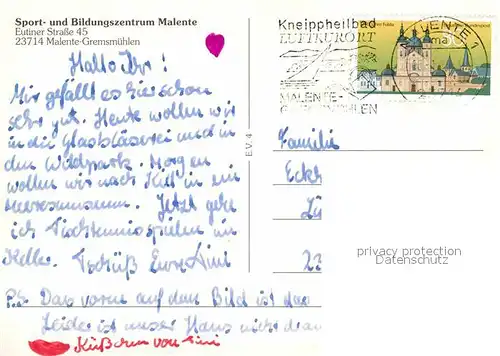 Sport- und Bildungszentrum Malente
Eutiner Straße 45
23714 Malente-Gremsmühlen
Hallo Ihr!
Mir gefällt es hier schon
sehr gut. Heute wollen wir
in die Glasbläserei und in
den Wildpark. Morgen
wollen wir nach Kiel in ein
Meeresmuseum. Jetzt gehe
ich Tischtennis spielen im
Keller. Tschüß Eure
P.S. Das vorne auf dem Bild ist das
Leider ist unser Haus nicht dra
Küßchen von
E.V. 4
Kneippheilbad
LUFTKURORT
MALENTE-
GREMSMÜHLEN
MALENTE 1
Familie
Eck
23
privacy protection
Datenschutz